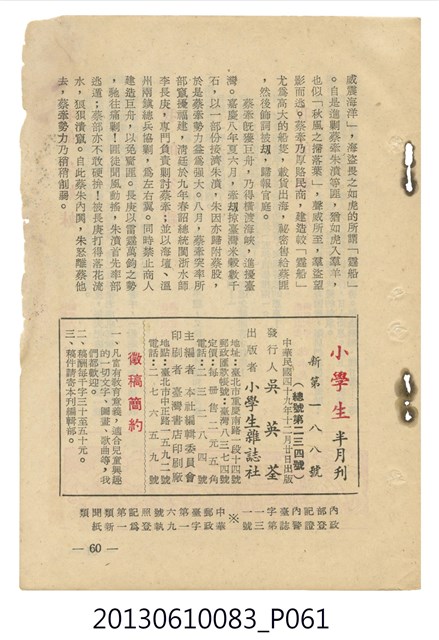 威震海洋」,海盜畏之如虎的所謂「霆船」
。自是進剿蔡牽朱濆等匪,猶如虎入羣羊,
也似「秋風之掃落葉」,聲威所至,羣盜望
影而逃。蔡牽乃厚賂民商,建造較「霆船」
尤爲高大的船隻,載貨出海,祕密售給蔡匪
,然後飾詞被刼,歸報官廳。
蔡牽既獲巨舟,乃得橫渡海峽,進擾臺
灣。嘉慶八年夏六月,牽刼掠臺灣米穀數千
石,以一部份接濟朱濆,朱因亦歸附蔡股,
於是蔡牽勢力益爲強大。八月,蔡牽突率所
部竄擾福建,清廷於九年春詔總統閩浙水師
李長庚,專門負責剿討蔡牽;並以海壇、溫
州兩鎮總兵協剿,爲左右翼。同時禁止商人
建造巨舟,以免資匪。長庚以雷霆萬鈞之勢
,馳往痛剿!匪徒聞風動搖,朱濆首先率部
逃遁;蔡部亦不敢硬拚!被長庚打得落花流
水,狼狽潰竄。自此蔡朱內鬨,朱怒離蔡他
去,蔡牽勢力乃稍稍削弱。
小學生 半月刊
新第一八八號
(總號第二三四號)
中華民國四十九年十二月廿日出版
發行人 吳英荃
出版者 小學生雜誌社
地址:臺北市重慶南路一段十四號
郵政匯款帳號:臺灣八三七四號
定價:每冊售二元五角
電話:二三二八四號
主編者 本社編輯委員會
印刷者 臺灣書店印刷廠
地點:臺北市中正路一五九二號
電話:二七六五九號
徵稿簡約
一、凡富有教育意義,適合兒童興趣
的一切文字、圖畫、歌曲等,我
們都歡迎。
二、稿酬每千字三十至五十元。
三、稿件請寄本刊編輯部。
內政
部登
記證
內警
臺誌
字第
一三
一號
※
中華
郵政
臺字
第一
六九
號執
照登
記爲
第一
類新
聞紙
類
— 60 —
20130610083_P061